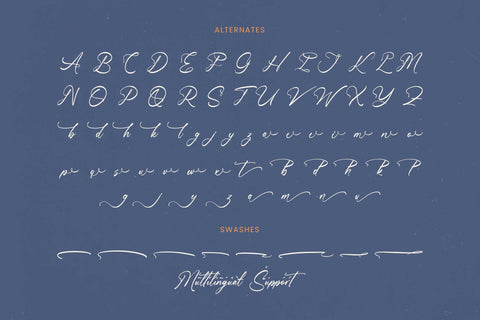 ALTERNATES
A B C D E F G H I J K L M
N O P Q R S T U V W X Y Z
b d h k l g j y z a e i c u m n o
p q s u v w x e r t b d h k l p
g j y z a m n u
SWASHES
Multilingual Support